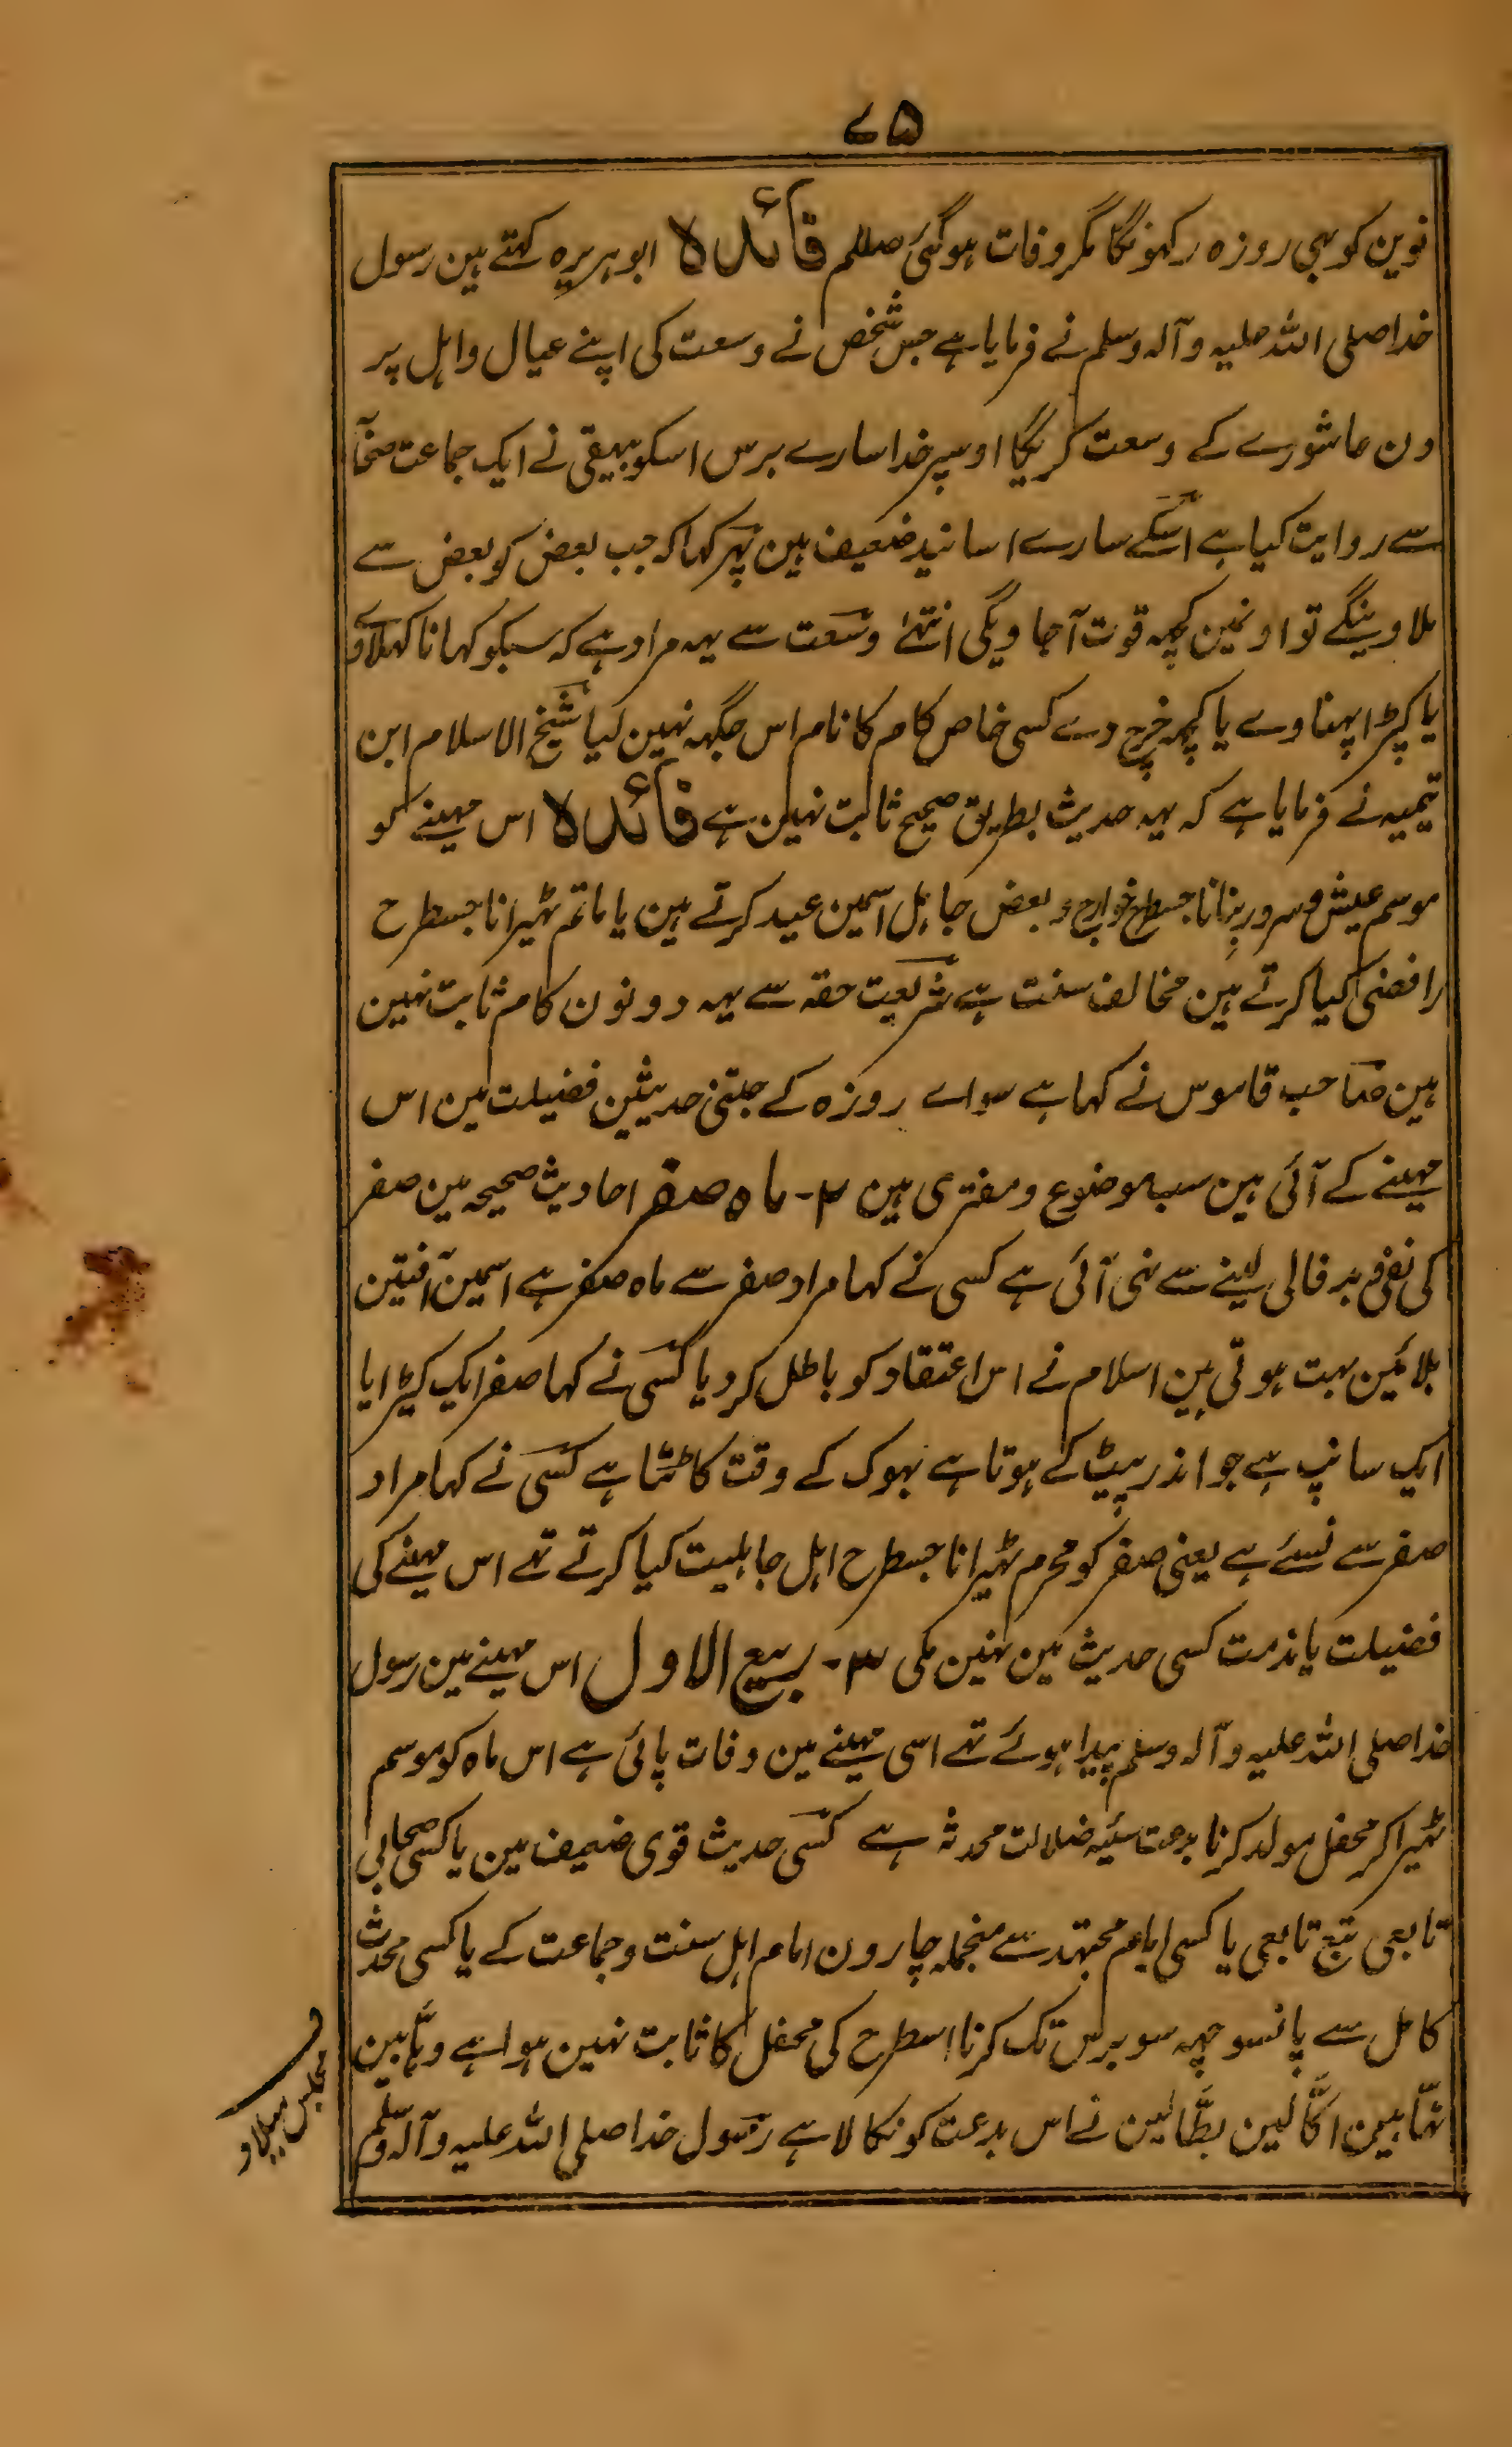 ۷۵
نوین کو بہی روزہ رکہونگا مگر وفات ہوگئی صلعم فائدہ ابوہریرہ کہتے ہین رسول
خدا صلی اللہ علیہ وآلہ وسلم نے فرمایا ہے جس شخص نے وسعت کی اپنے عیال واہل پر
دن عاشورے کے وسعت کریگا اوسپر خدا سارے برس اسکو بیہقی نے ایک جماعت صحابہ
سے روایت کیا ہے اسکے سارے اسانید ضعیف ہین پہر کہا کہ جب بعض کو بعض سے
ملاوینگے تو اونمین کچہہ قوت آجاویگی انتہے وسعت سے یہہ مراد ہے کہ سبکو کہانا کہلاوے
یا کپڑا پہناوے یا کچہہ خرچ دے کسی خاص کام کا نام اس جگہہ نہین لیا شیخ الاسلام ابن
تیمیہ نے فرمایا ہے کہ یہہ حدیث بطریق صحیح ثابت نہین ہے فائدہ اس مہینے کو
موسم عیش وسرور بنانا جسطرح خوارج و بعض جاہل اسمین عید کرتے ہین یا ماتم ٹہیرانا جسطرح
رافضی کیا کرتے ہین مخالف سنت ہے شریعت حقہ سے یہہ دونون کام ثابت نہین
ہین صاحب قاموس نے کہا ہے سواے روزہ کے جتنی حدیثین فضیلت مین اس
مہینے کے آئی ہین سب موضوع ومفتری ہین ۲- ماہ صفر احادیث صحیحہ مین صفر
کی نفی و بدفالی لینے سے نہی آئی ہے کسی نے کہا مراد صفر سے ماہ صفر ہے اسمین آفتین
بلائین بہت ہوتی ہین اسلام نے اس اعتقاد کو باطل کردیا کسی نے کہا صفر ایک کیڑا یا
ایک سانپ ہے جو اندر پیٹ کے ہوتا ہے بہوک کے وقت کاٹتا ہے کسی نے کہا مراد
صفر سے نسئے ہے یعنی صفر کو محرم ٹہیرانا جسطرح اہل جاہلیت کیا کرتے تہے اس مہینے کی
فضیلت یا مذمت کسی حدیث مین نہین ملی ۳- ربیع الاول اس مہینے مین رسول
خدا صلی اللہ علیہ وآلہ وسلم پیدا ہوئے تہے اسی مہینے مین وفات پائی ہے اس ماہ کو موسم
ٹہیرا کر محفل مولد کرنا بدعت سیئہ ضلالت محدثہ ہے کسی حدیث قوی ضعیف مین یا کسی صحابی
تابعی تبع تابعی یا کسی امام مجتہد سے منجملہ چارون امام اہل سنت وجماعت کے یا کسی محدث
کامل سے پانسو چہہ سو برس تک کرنا اسطرح کی محفل کا ثابت نہین ہوا ہے وہّابین
نہّابین اکّالین بطّالین نے اس بدعت کو نکالا ہے رسول خدا صلی اللہ علیہ وآلہ وسلم
مجلس میلاد